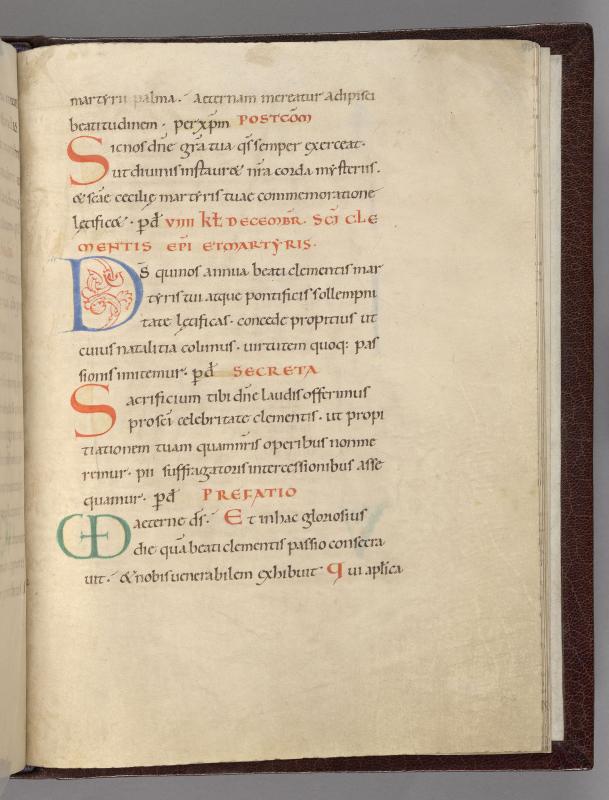 martyrii palma. Aeternam mereatur adipisci
beatitudinem. per xp̄m POSTCŌM
Sic nos dn̄e gr̄a tua q̄s semper exerceat.
Ut divinis instauret nr̄a corda mysteriis.
& sc̄ae cecilię martyris tuae commemoratione
lętificet. p̄d VIIII KL̄ DECEMBR̄. SC̄I CLE
MENTIS EP̄I ET MARTYRIS.
Ds̄ qui nos annua beati clementis mar
tyris tui atque pontificis sollempni
tate lętificas. concede propitius ut
cuius natalitia colimus. virtutem quoq: pas
sionis imitemur. p̄d SECRETA
Sacrificium tibi dn̄e laudis offerimus
pro sc̄i celebritate clementis. ut propi
tiationem tuam quam nr̄is operibus non me
remur. pii suffragatoris intercessionibus asse
quamur. p̄d PREFATIO
VD aeterne ds̄. Et in hac gloriosius
die qua beati clementis passio consecra
vit. & nobis venerabilem exhibuit Qui aplīca